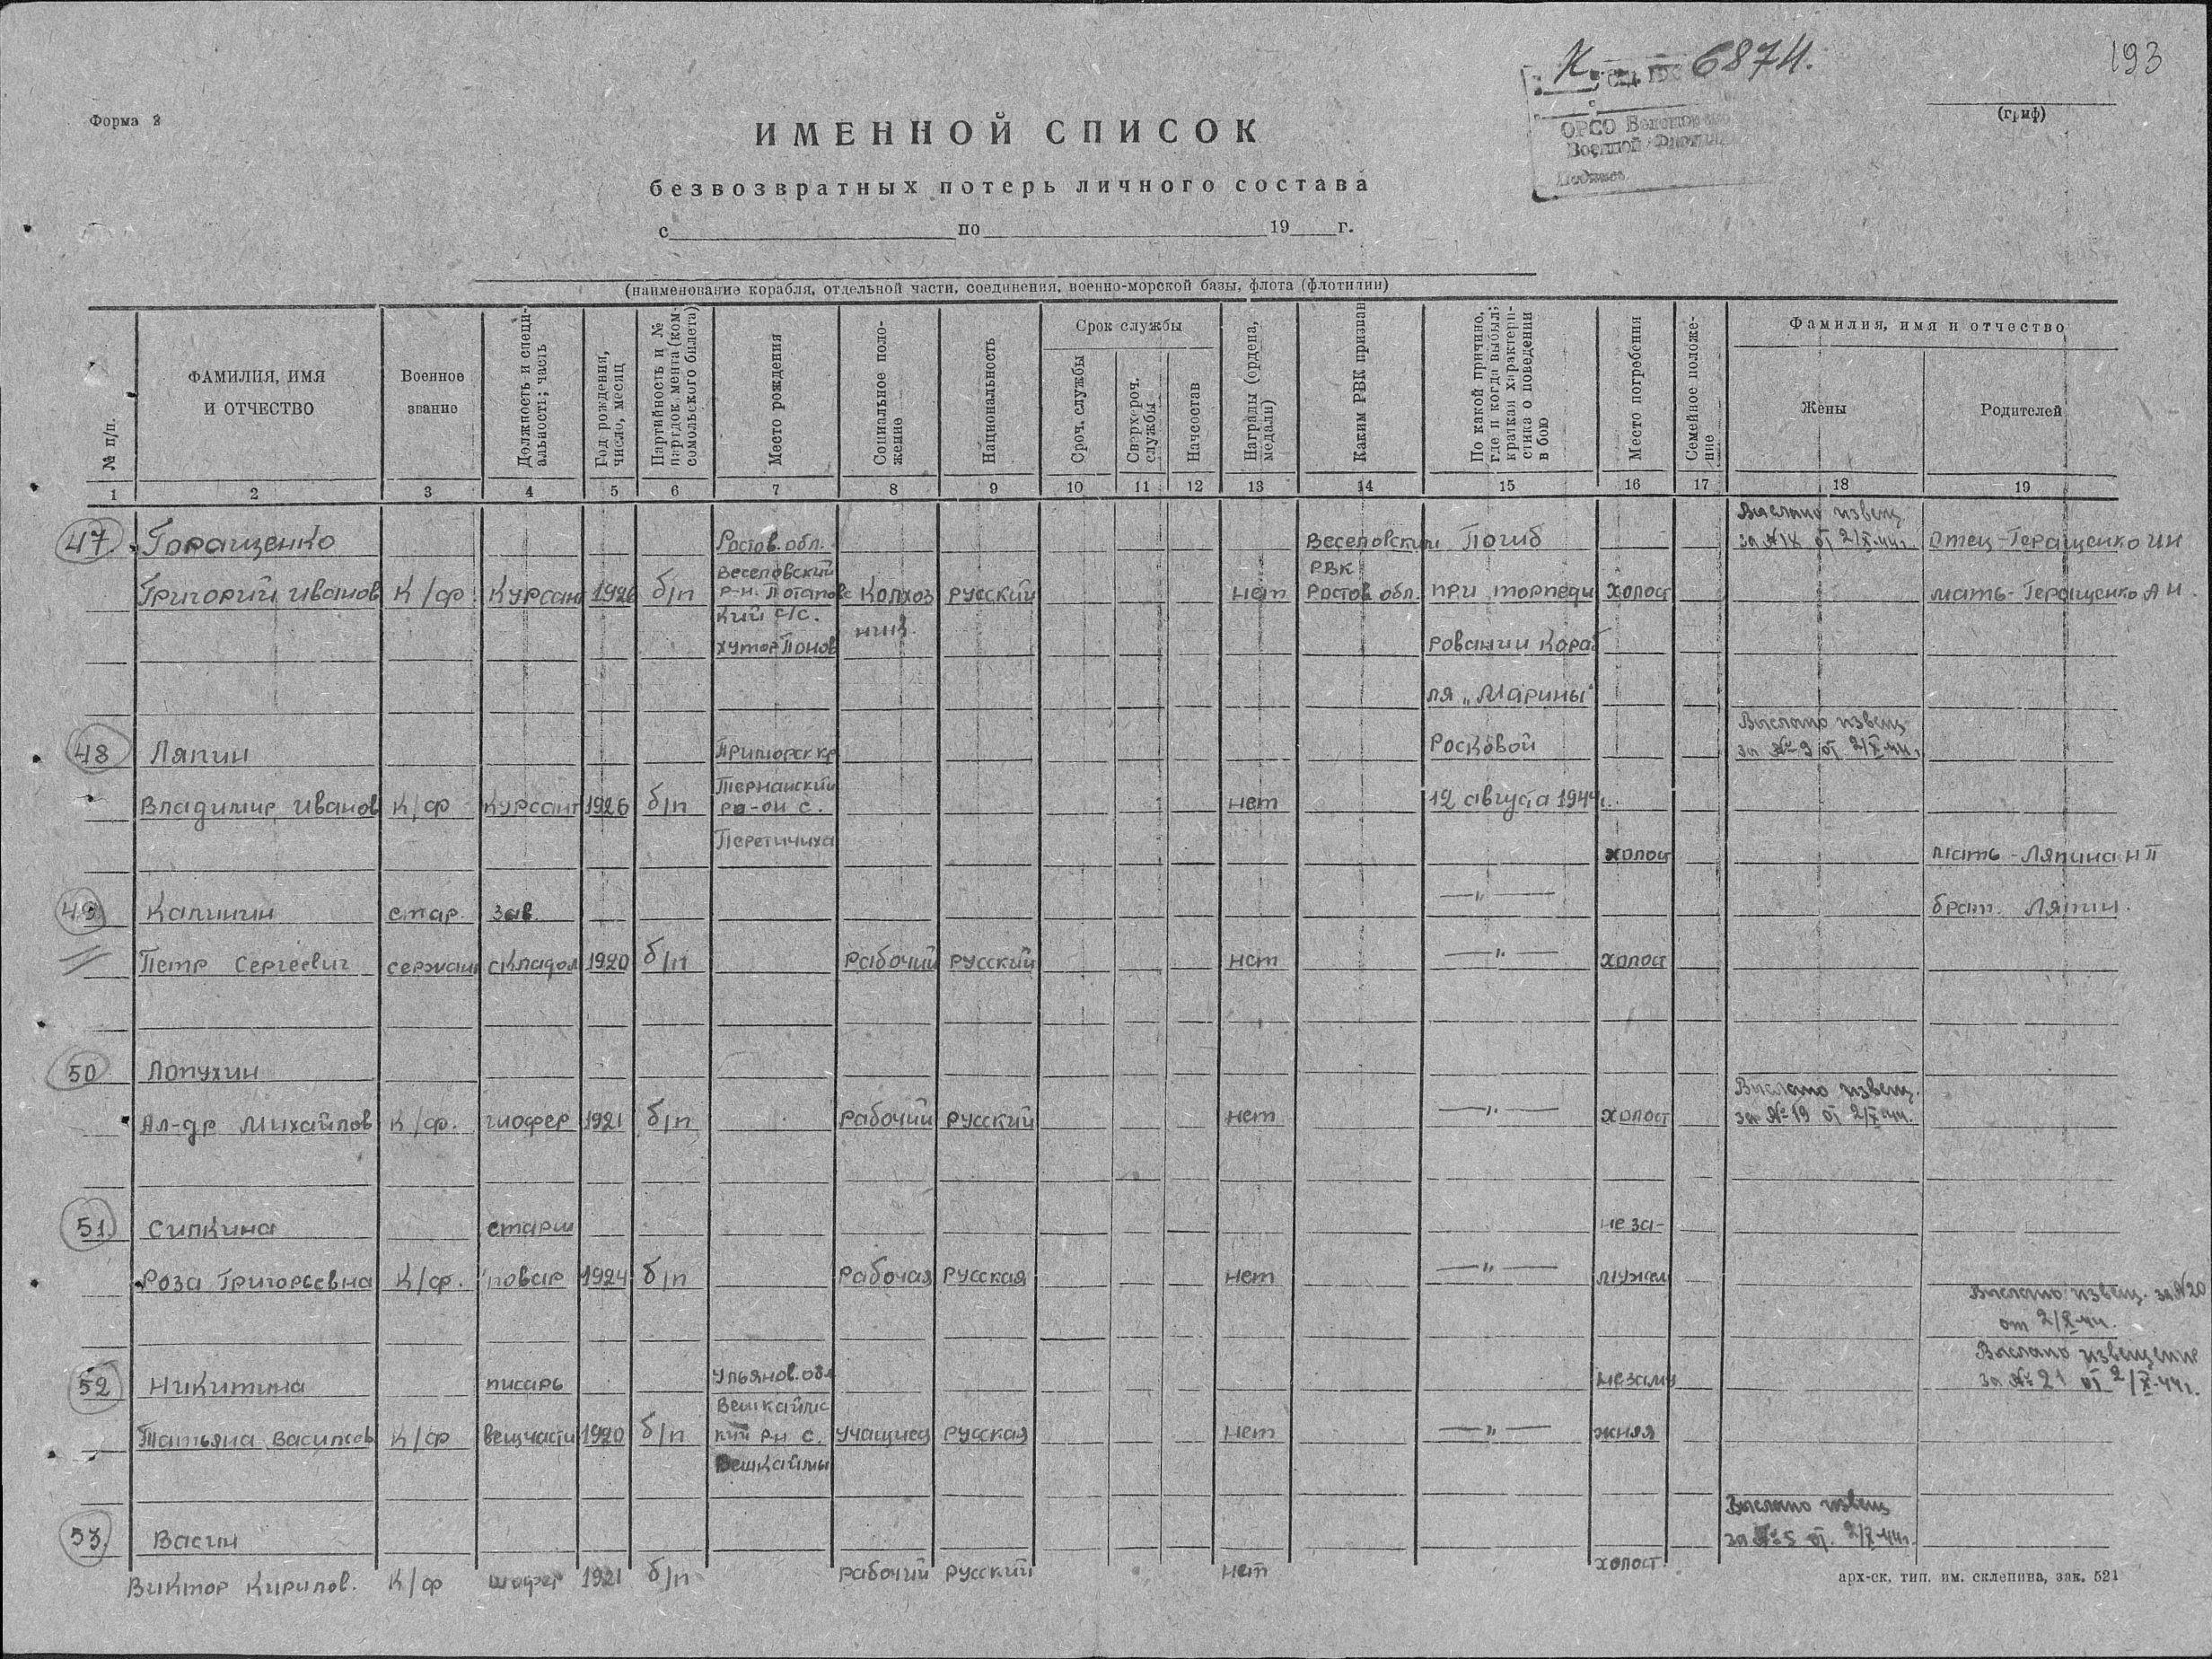 К. 6874.
193
ОРСО Беломорс
Военной Флотил
Форма 2
(гриф)
ИМЕННОЙ СПИСОК
безвозвратных потерь личного состава
с по 19 г.
(наименование корабля, отдельной части, соединения, военно-морской базы, флота (флотилии)
№ п/п.
ФАМИЛИЯ, ИМЯ И ОТЧЕСТВО
Военное звание
Должность и специальность; часть
Год рождения, число, месяц
Партийность и № партдокумента (комсомольского билета)
Место рождения
Социальное положение
Национальность
Срок службы
Сроч. службы
Сверхсроч. службы
Начсостав
Награды (ордена, медали)
Каким РВК призван
По какой причине, где и когда выбыл; краткая характеристика о поведении в бою
Место погребения
Семейное положение
Фамилия, имя и отчество
Жены
Родителей
1 2 3 4 5 6 7 8 9 10 11 12 13 14 15 16 17 18 19
Выслано извещ.
47. Геращенко Ростов. обл. Веселовский Погиб за №18 от 2/X-44г. Отец-Геращенко И И
Веселовский РВК
Григорий Иванов К/ф Курсант 1926 б/п р-н. Потаповс Колхоз русский нет Ростов обл. при торпеди холост мать-Геращенко А Н.
кий с/с. ник
хутор Попов ровании Кораб
ля „Марины"
Выслано извещ
48 Ляпин Приморск кр Росковой за №9 от 2/X-44г.
Тернайский
Владимир Иванов К/ф Курсант 1926 б/п ра-он с. нет 12 августа 1944г.
Перетичиха холост мать-Ляпина Н П
49. Калинин стар. зав. —„— брат. Ляпин.
Петр Сергеевич сержант складом 1920 б/п Рабочий русский нет —„— холост
50 Лопухин
Выслано извещ.
Ал-др Михайлов К/ф. шофер 1921 б/п рабочий русский нет —„— холост за №19 от 2/X-44.
51. Силкина старш неза-
Роза Григорьевна К/ф. повар 1924 б/п Рабочая русская нет —„— мужем
Выслано извещ. за №20
от 2/X-44.
Выслано извещение
52 Никитина писарь Ульянов. обл незаму за №21 от 2/X-44г.
Вешкаймс
Татьяна Васильев К/ф вещчасти 1920 б/п кий рн с. учащиеся русская нет —„— жняя
Вешкаймы
Выслано извещ
53. Васин за №5 от. 2/X-44г.
Виктор Кирилов. К/ф шофер 1921 б/п рабочий русский нет холост.
арх-ск. тип. им. склепина, зак. 521